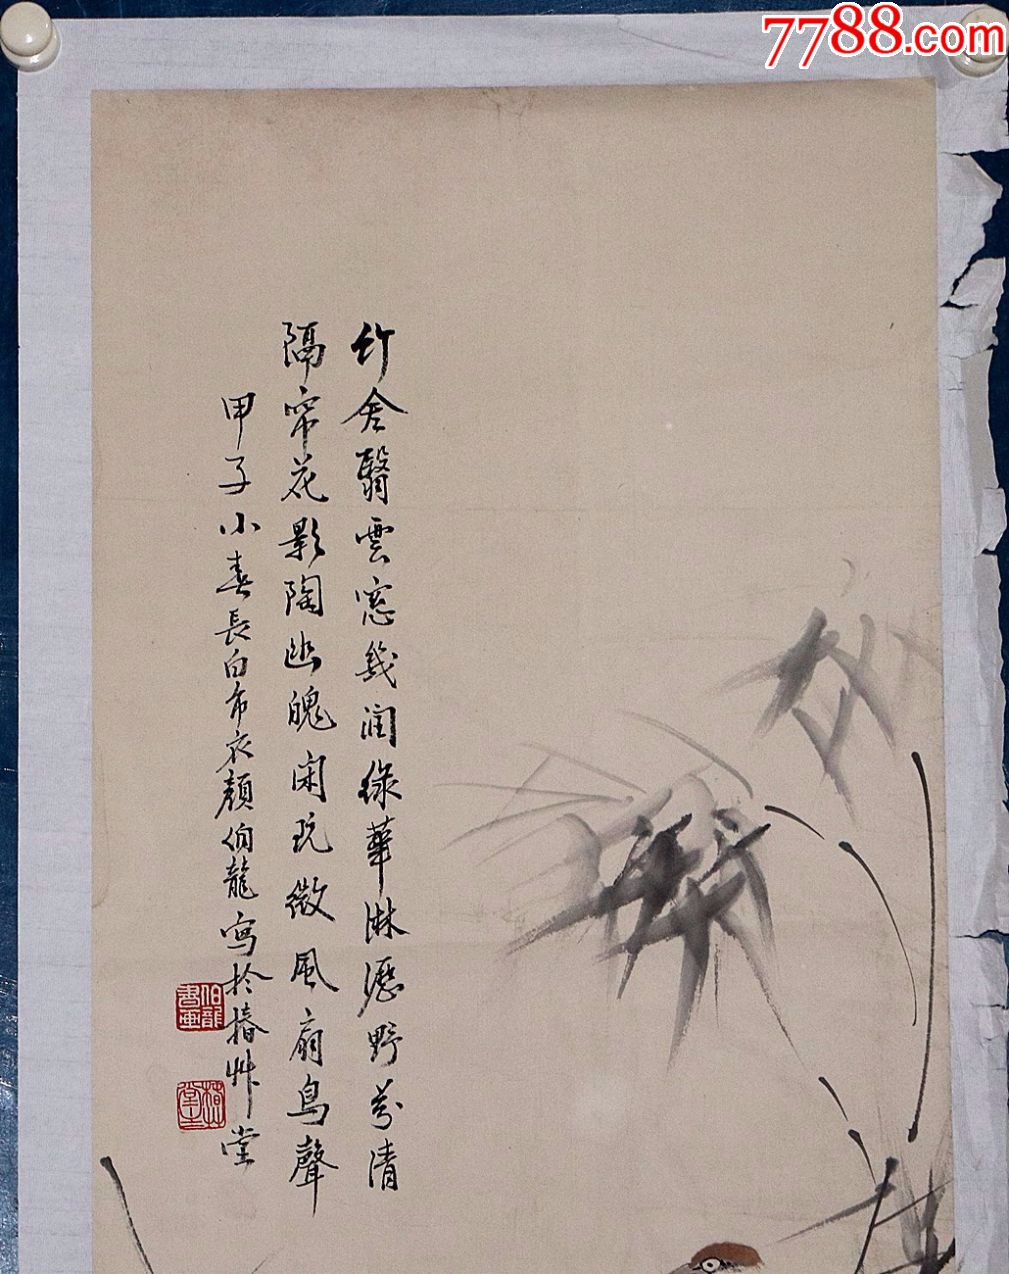 7788.com
竹舍翳雲窓幾润緑華淋瀝野芬清
隔帘花影陶幽魄闲玩微風扇鳥聲
甲子小春長白布衣顏伯龍寫於椿艸堂
伯龍書畫